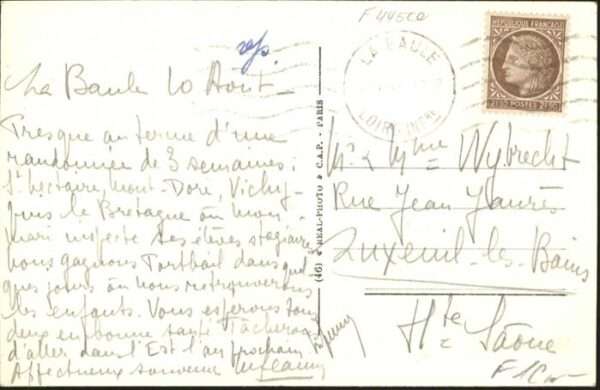 F 445CO
rép
La Baule 10 Août
Presque au terme d'une
randonnée de 3 semaines:
St Nectaire, Mont-Dore, Vichy
puis la Bretagne où mon
mari inspecte ses élèves stagiaires
nous gagnons Portbail dans quel
ques jours où nous retrouverons
les enfants. Vous espérons tous
deux en bonne santé. Tâcherons
d'aller dans l'Est l'an prochain
Affectueux souvenir
(46) REAL-PHOTO C.A.P. - PARIS
LA BAULE
LOIRE INFRE
REPUBLIQUE FRANÇAISE
2F50 POSTES 2F50
Mr & Mme Wybrecht
Rue Jean Jaurès
Luxeuil-les-Bains
Hte Saône